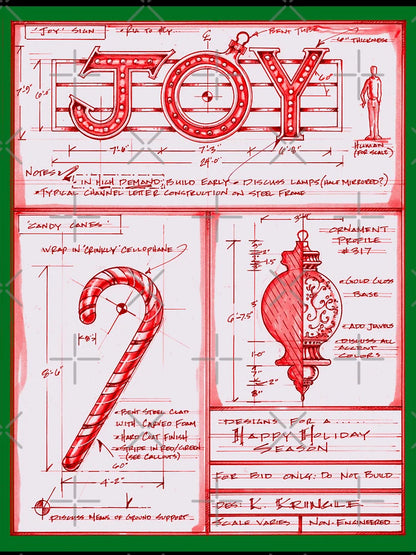 "JOY" SIGN
BENT TUBE
6" THICKNESS
JOY
60°
7'-8"
6'-0"
7'-6" 7'-3" 6'-9"
24'-0"
HUMAN
(FOR SCALE)
NOTES:
IN HIGH DEMAND; BUILD EARLY • DISCUSS LAMPS (HALF MIRRORED?)
• TYPICAL CHANNEL LETTER CONSTRUCTION ON STEEL FRAME
"CANDY CANES"
WRAP IN "CRINKLY" CELLOPHANE
8"
8'-6"
• BENT STEEL CLAD
WITH CARVED FOAM
• HARD COAT FINISH
• STRIPE IN RED/GREEN
(SEE CALLOUTS)
60°
4'-2"
DISCUSS MEANS OF GROUND SUPPORT
ORNAMENT
PROFILE
#317
1.5"
6'-7.5"
1'-0"
2"
8"
• GOLD GLOSS
BASE
• ADD JEWELS
• DISCUSS ALL
ACCENT
COLORS
DESIGNS FOR A
HAPPY HOLIDAY
SEASON
FOR BID ONLY: DO NOT BUILD
DES: K. KRINGLE
SCALE VARIES NON-ENGINEERED